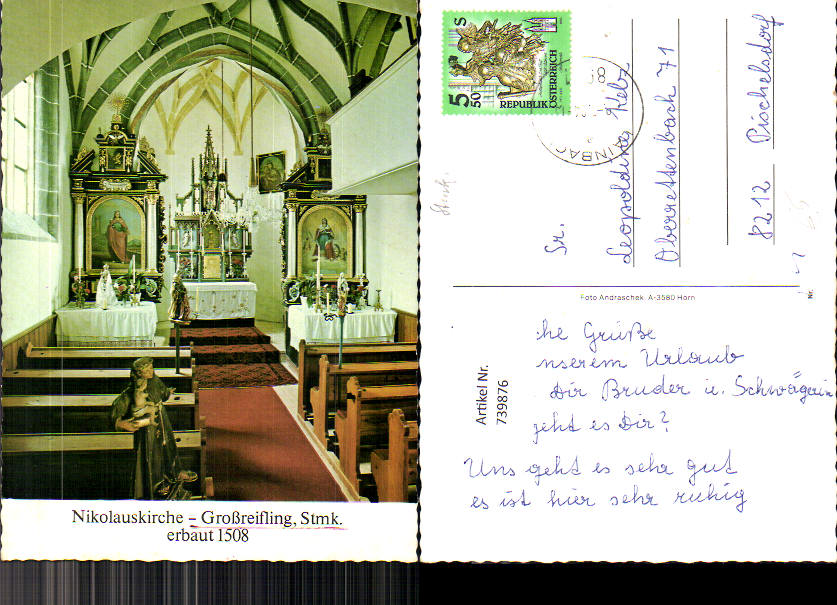 Nikolauskirche – Großreifling, Stmk.
erbaut 1508
S
5
50
REPUBLIK ÖSTERREICH
Fr.
Leopoldine
Oberrettenbach 71
8212 Pischelsdorf
Foto Andraschek A-3580 Horn
Nr.
Artikel Nr.
739876
he Grüße
nserem Urlaub
Dir Bruder u. Schwägerin
geht es Dir?
Uns geht es sehr gut
es ist hier sehr ruhig